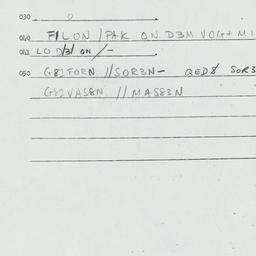 030 0
040 FILON / PAK ON D3M VOG+ MI
041 LO D/3/ ON /-
050 G82FORN // SOR3N- QED8 SOR3
G82VAS8N // MAS83N